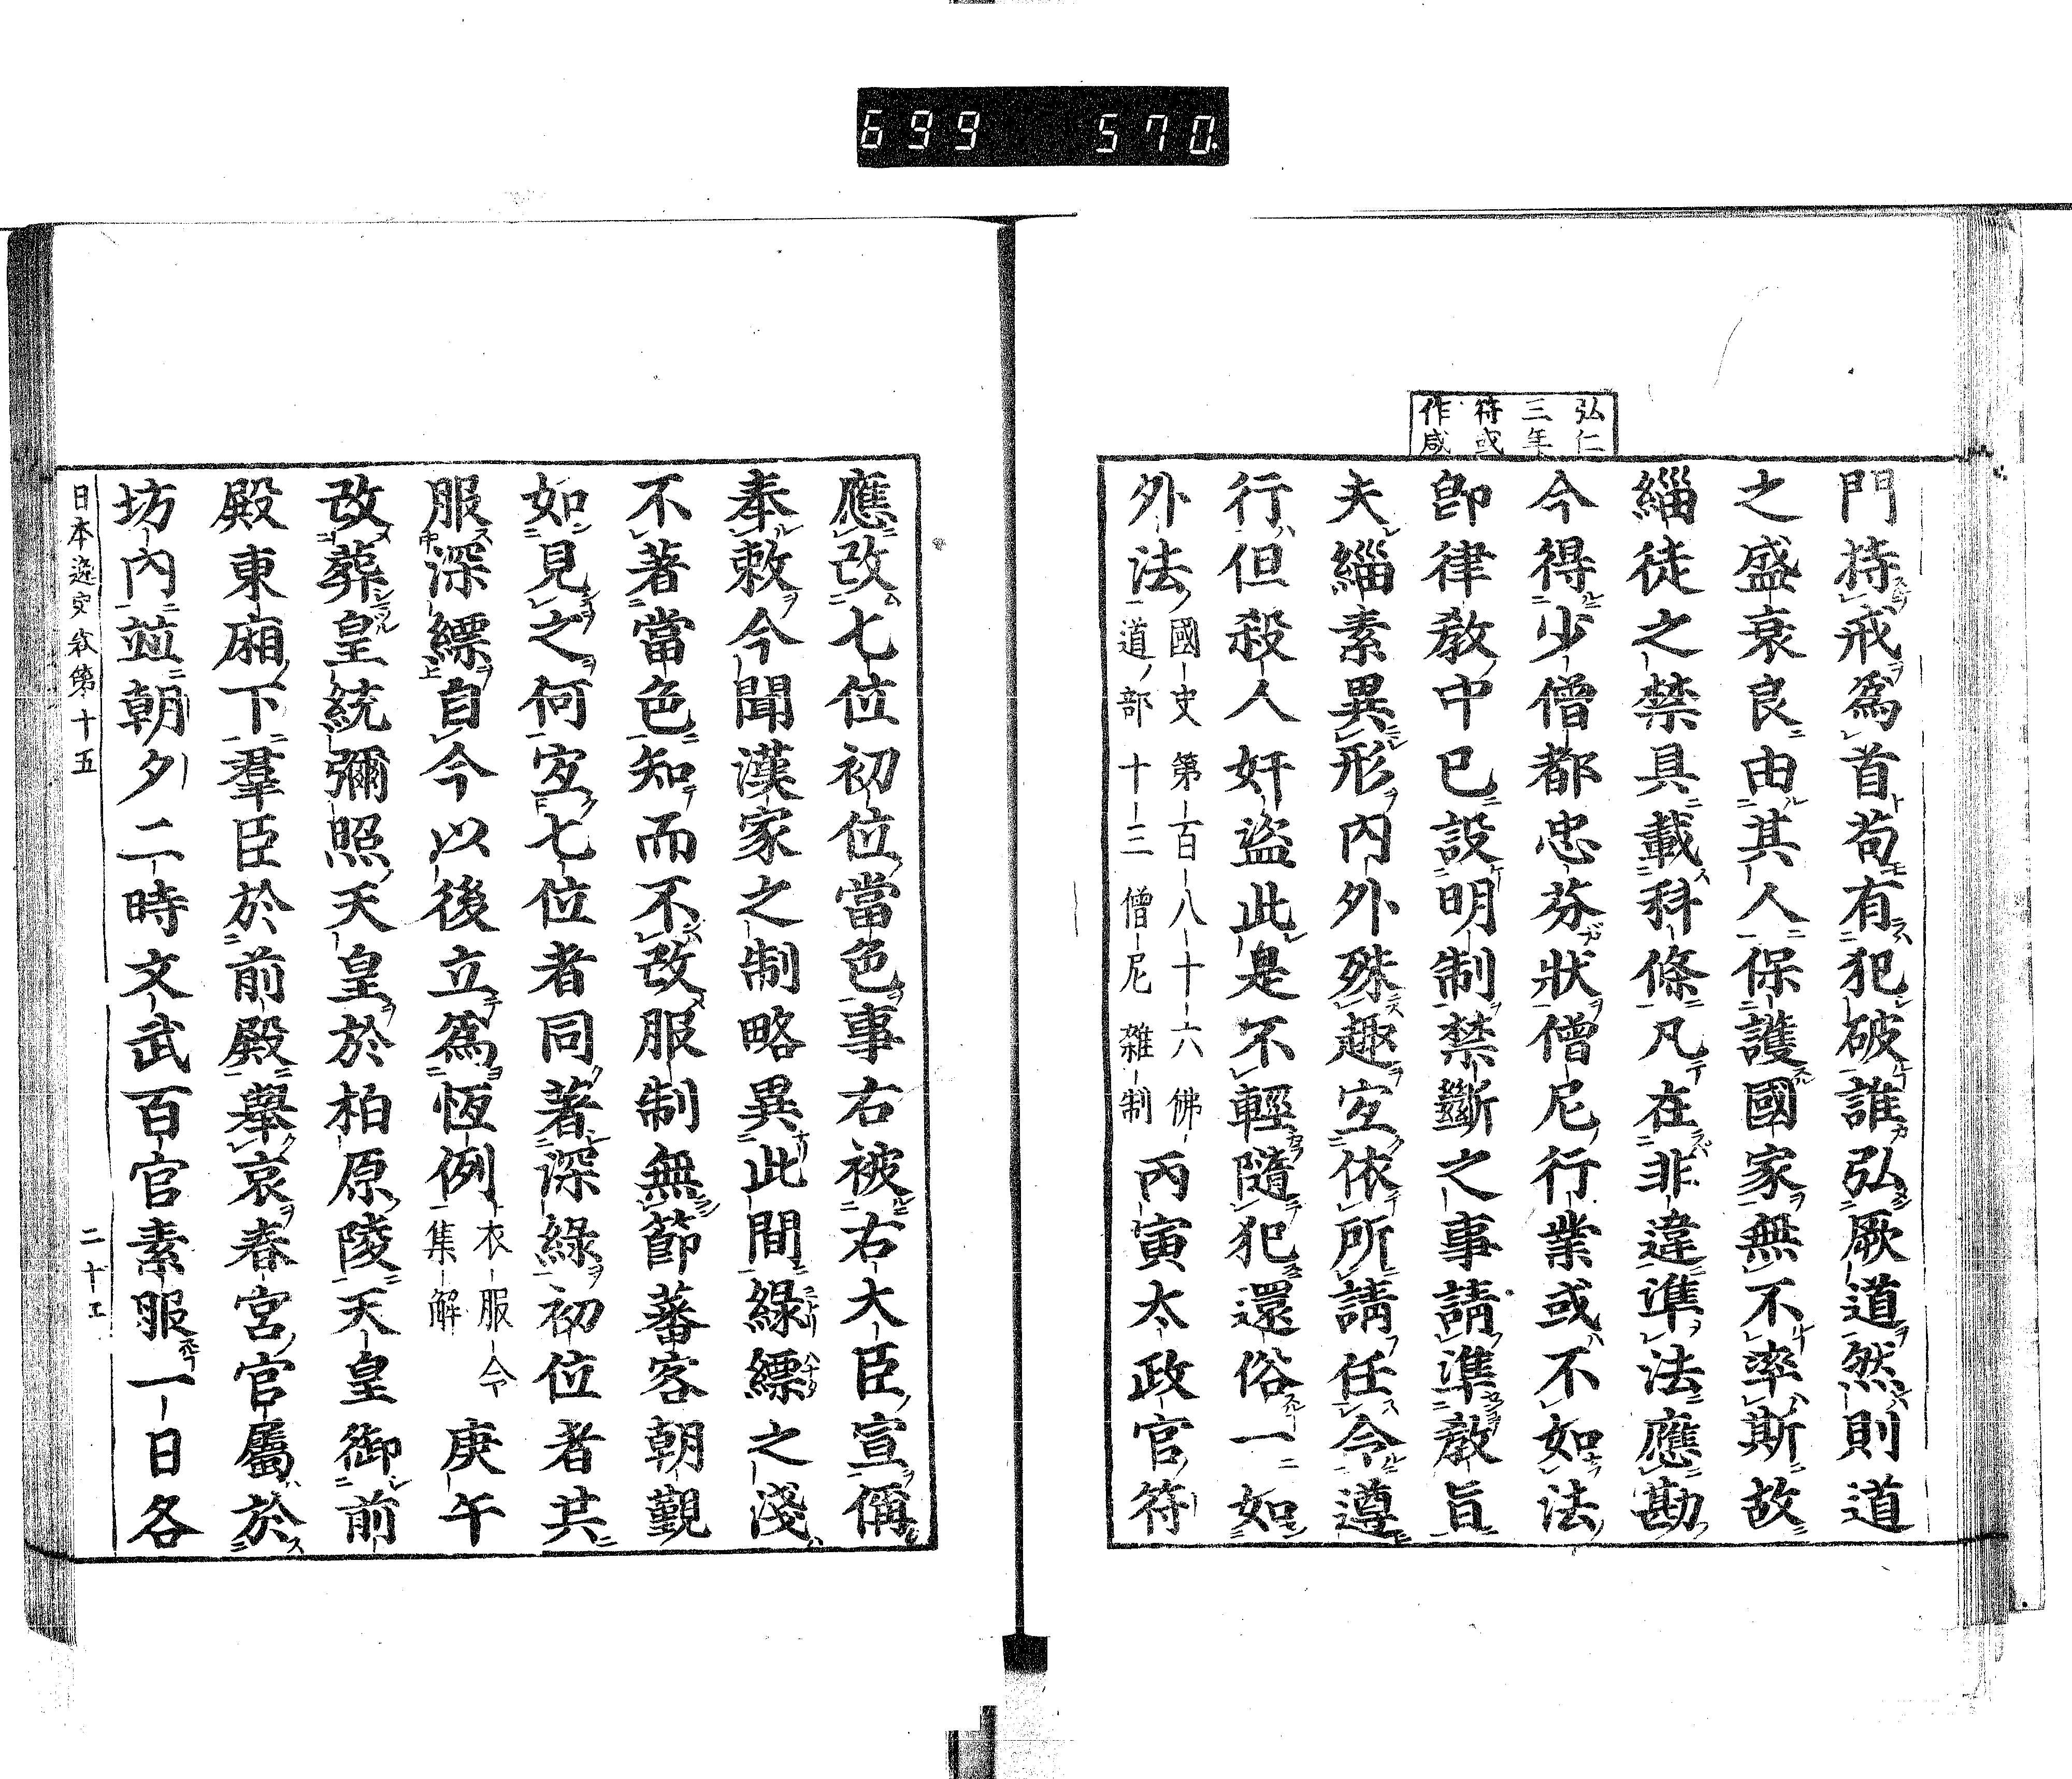 699 570.
弘仁
三年
符或
作咸
門持戒爲首苟有犯破誰弘厥道然則道
之盛衰良由其人保護國家無不率斯故
緇徒之禁具載科條凡在非違準法應勘
今得少僧都忠芬狀僧尼行業或不如法
卽律教中已設明制禁斷之事請準教旨
夫緇素異形內外殊趣宐依所請任令遵
行但殺人奸盜此是不輕隨犯還俗一如
外法國史第百八十六佛
道部十三僧尼雜制丙寅太政官符
應改七位初位當色事右被右大臣宣偁
奉敕今聞漢家之制略異此間綠縹之淺
不著當色知而不改服制無節蕃客朝觀
如見之何宐七位者同著深綠初位者共
服深縹自今以後立爲恆例衣服令
集解庚午
改葬皇統彌照天皇於柏原陵天皇御前
殿東廂下羣臣於前殿舉哀春宮官屬於
坊內竝朝夕二時文武百官素服一日各
日本逸史卷第十五 二十五